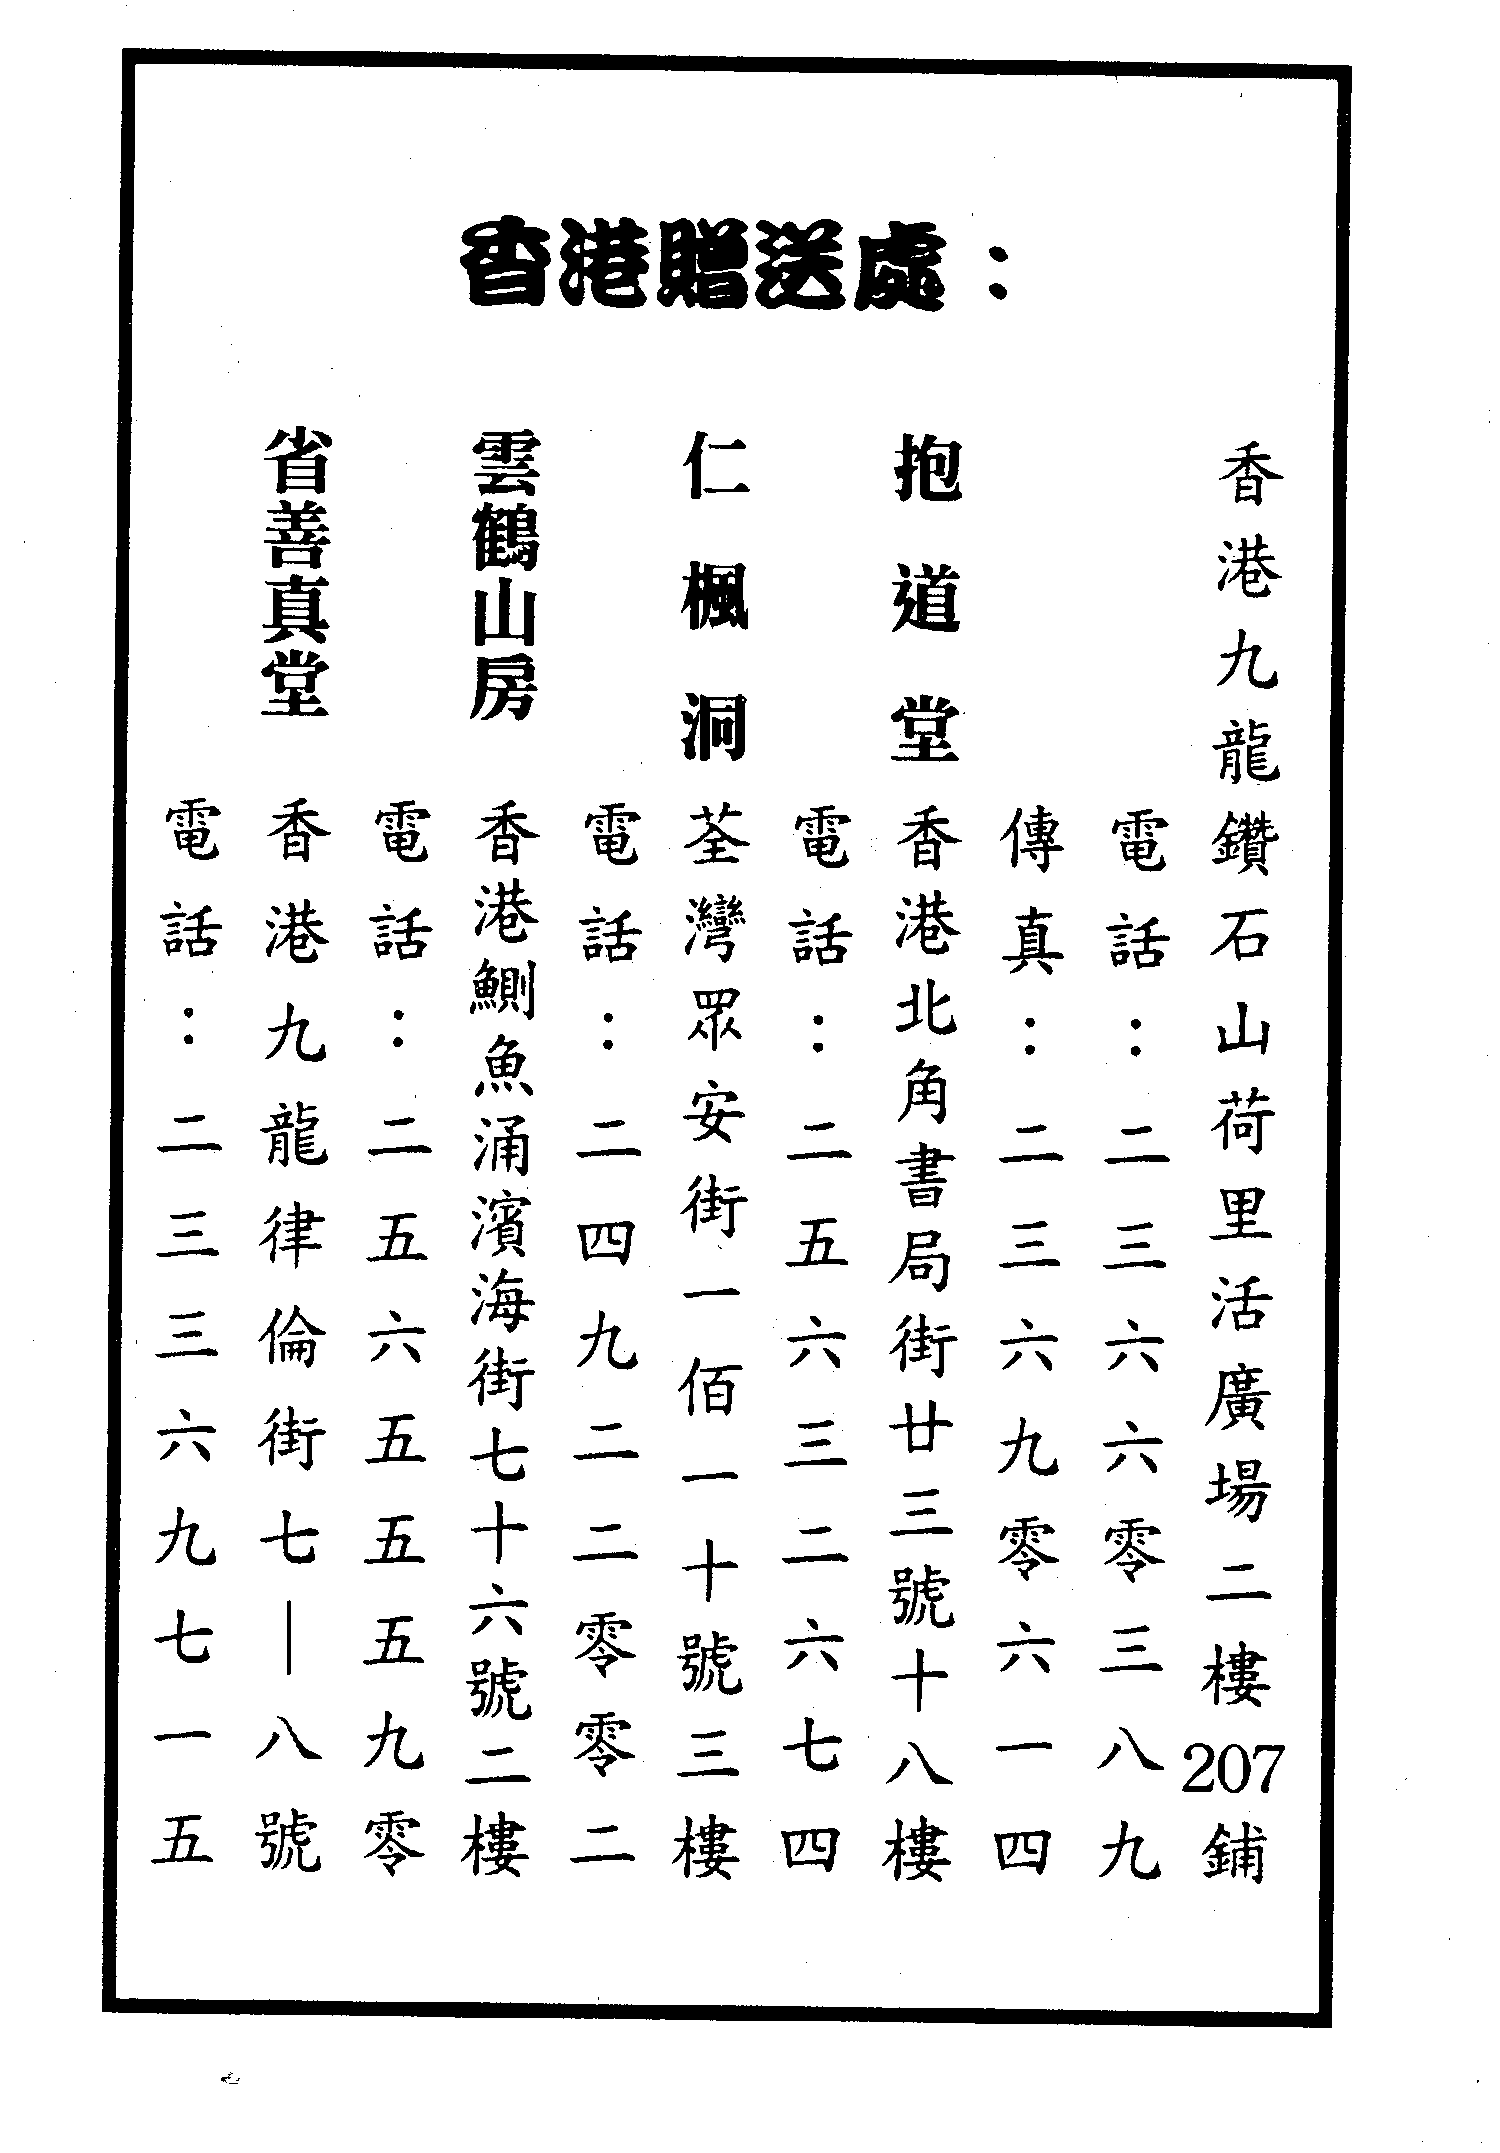 香港贈送處：
香港九龍鑽石山荷里活廣場二樓207鋪
電話：二三六六零三八九
傳真：二三六九零六一四
抱道堂 香港北角書局街廿三號十八樓
電話：二五六三二六七四
仁楓洞 荃灣眾安街一佰一十號三樓
電話：二四九二二零零二
雲鶴山房 香港鰂魚涌濱海街七十六號二樓
電話：二五六五五五九零
省善真堂 香港九龍律倫街七—八號
電話：二三三六九七一五